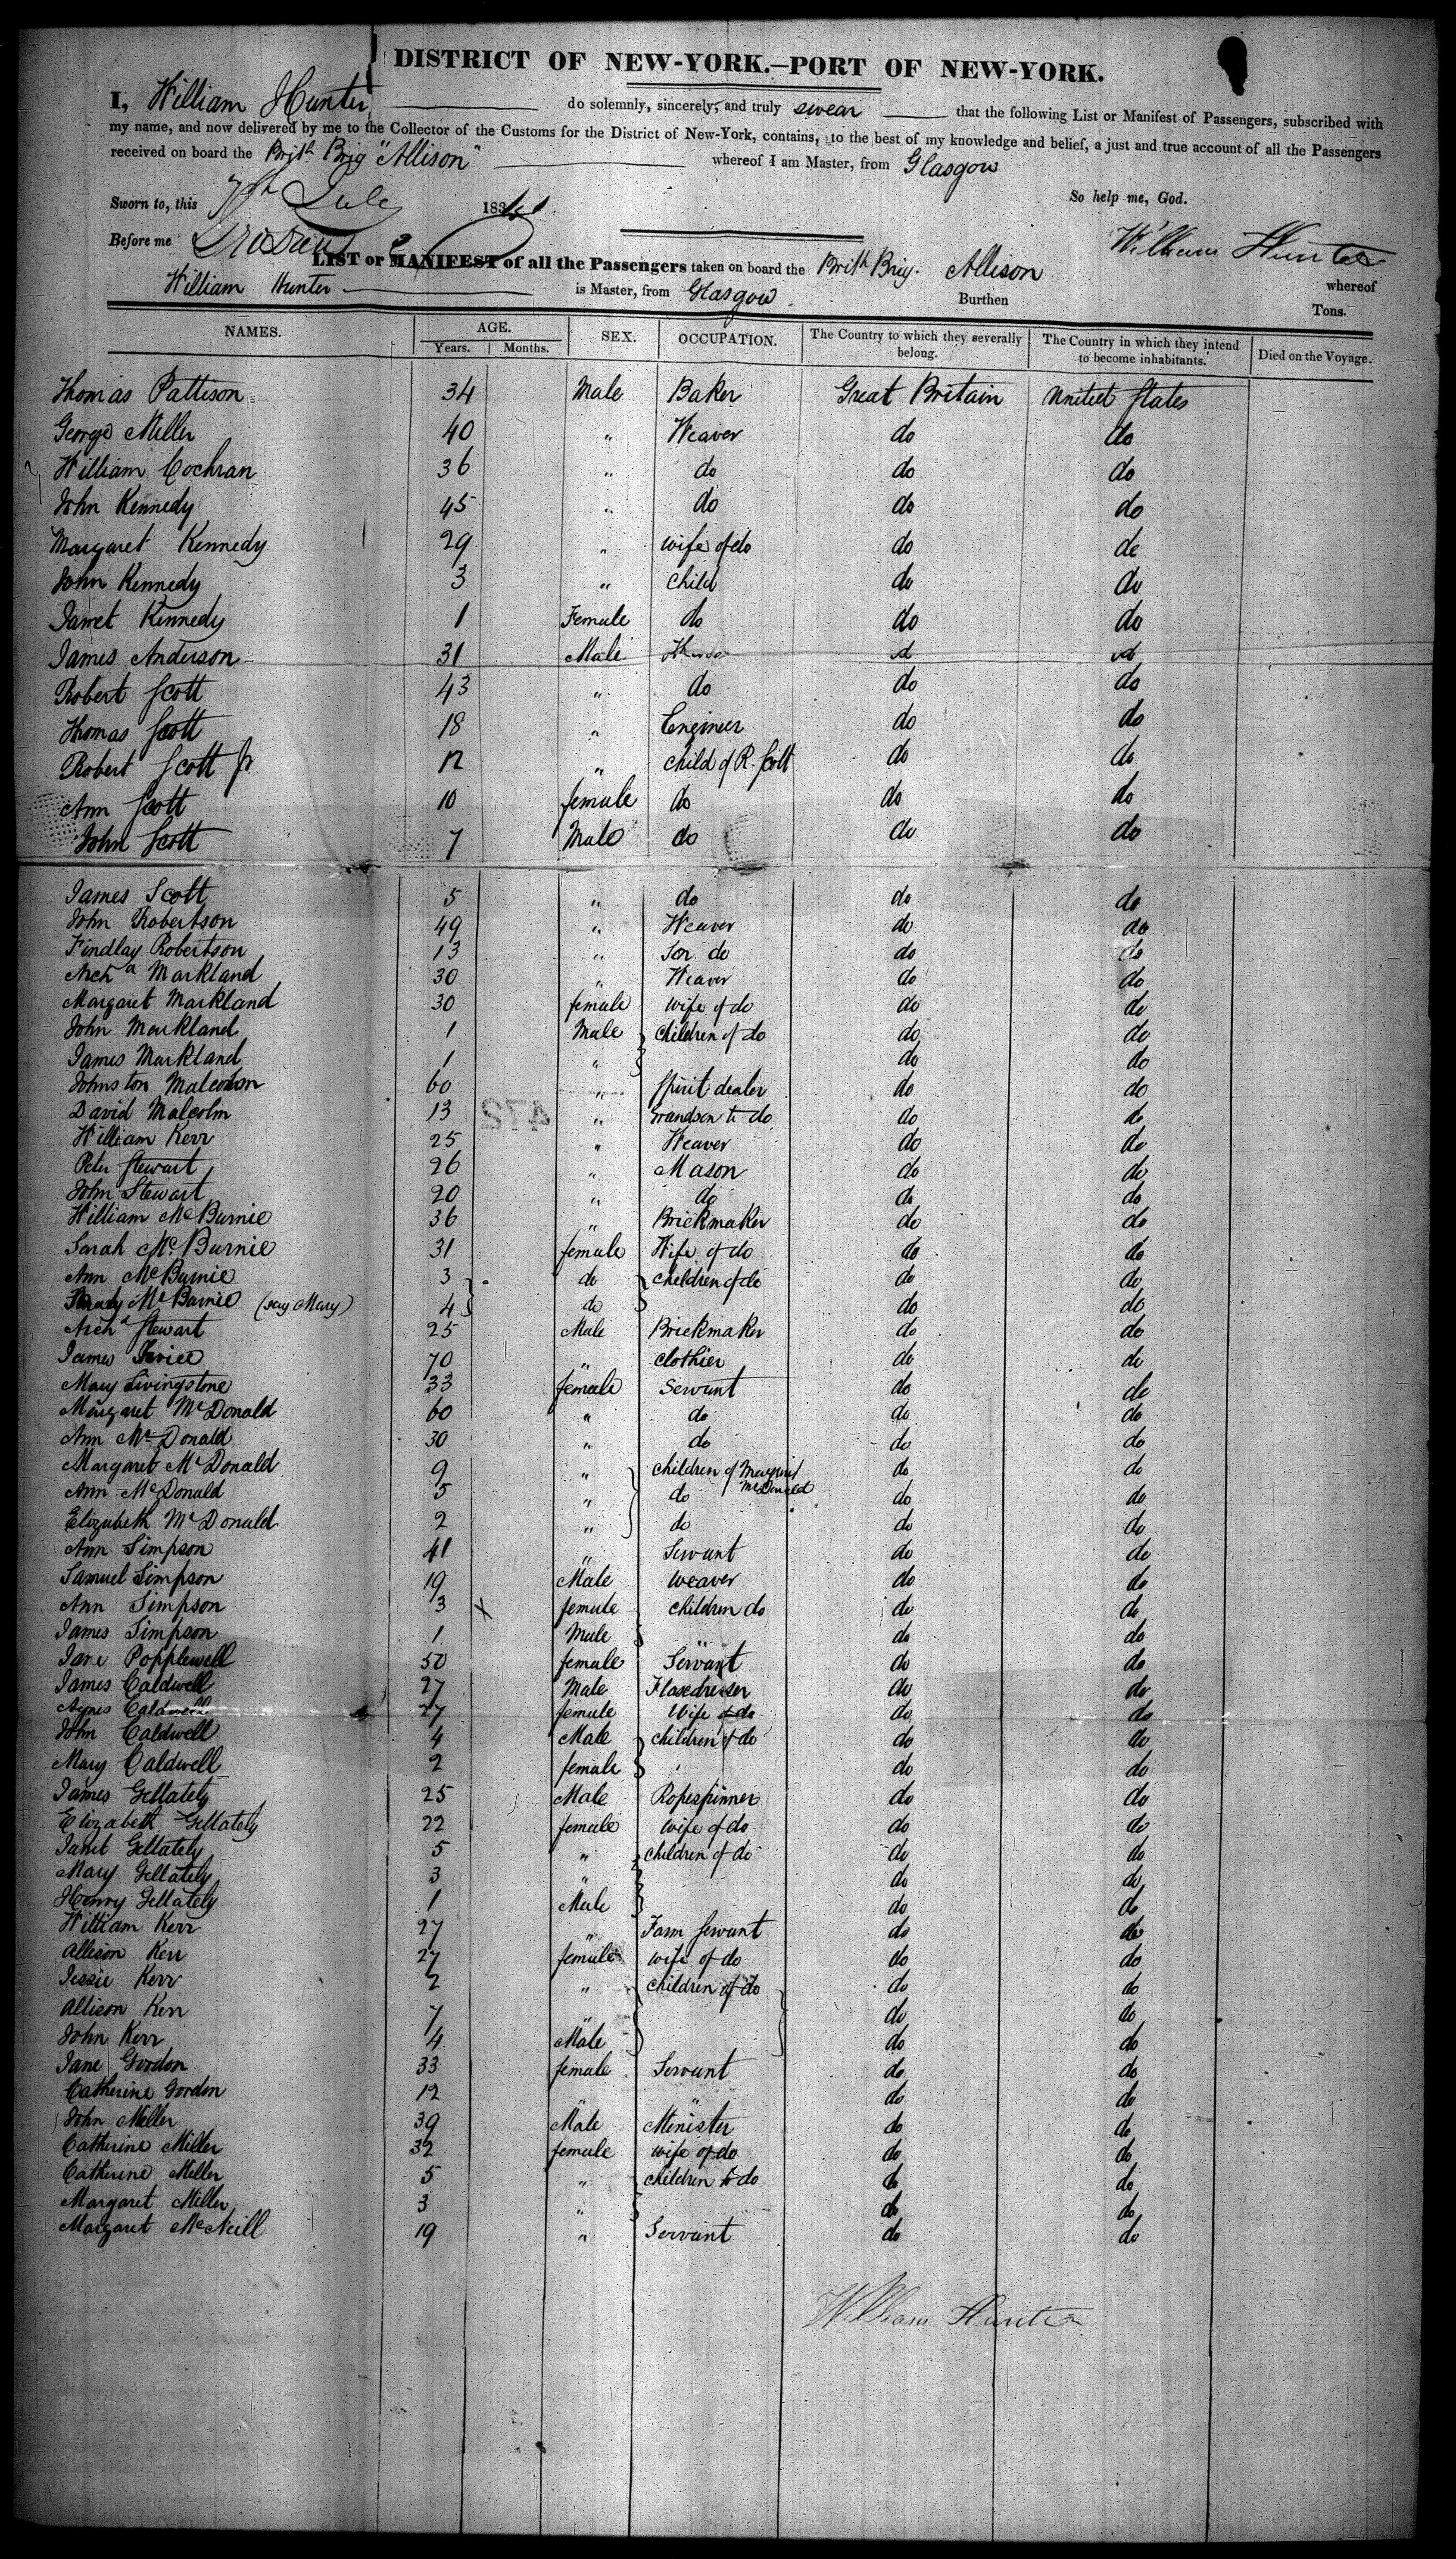 DISTRICT OF NEW-YORK.—PORT OF NEW-YORK.
I, William Hunter do solemnly, sincerely, and truly swear that the following List or Manifest of Passengers, subscribed with
my name, and now delivered by me to the Collector of the Customs for the District of New-York, contains, to the best of my knowledge and belief, a just and true account of all the Passengers
received on board the Brith Brig "Allison" whereof I am Master, from Glasgow
So help me, God.
Sworn to, this 7th July 184
Before me
William Hunter
LIST or MANIFEST of all the Passengers taken on board the Brith Brig. Allison whereof
William Hunter is Master, from Glasgow Burthen Tons.
NAMES. AGE. Years. Months. SEX. OCCUPATION. The Country to which they severally belong. The Country in which they intend to become inhabitants. Died on the Voyage.
Thomas Pattison 34 Male Baker Great Britain United States
George Miller 40 " Weaver do do
William Cochran 36 " do do do
John Kennedy 45 " do do do
Margaret Kennedy 29 " wife of do do do
John Kennedy 3 " child do do
Janet Kennedy 1 Female do do do
James Anderson 31 Male do do
Robert Scott 43 " do do do
Thomas Scott 18 " Engineer do do
Robert Scott Jr 12 " child of R. Scott do do
Ann Scott 10 female do do do
John Scott 7 Male do do do
James Scott 5 " do do do
John Robertson 49 " Weaver do do
Findlay Robertson 13 " Son do do do
Archd Markland 30 " Weaver do do
Margaret Markland 30 female wife of do do do
John Markland 1 Male children of do do do
James Markland 1 " do do
Johnston 60 " Spirit dealer do do
David Malcolm 13 " Grandson to do do do
William Kerr 25 " Weaver do do
Peter Stewart 26 " Mason do do
John Stewart 20 " do do do
William McBurnie 36 " Brickmaker do do
Sarah McBurnie 31 female Wife of do do do
Ann McBurnie 3 do children of do do do
McBurnie (say Mary) 4 do do do
Archd Stewart 25 Male Brickmaker do do
James 70 " clothier do do
Mary Livingstone 33 female Servant do do
Margaret McDonald 60 " do do do
Ann McDonald 30 " do do do
Margaret McDonald 9 " children of Margaret McDonald do do
Ann McDonald 5 " do do do
Elizabeth McDonald 2 " do do do
Ann Simpson 41 " Servant do do
Samuel Simpson 19 Male weaver do do
Ann Simpson 3 X female children do do do
James Simpson 1 Male " do do
Jane Popplewell 50 female Servant do do
James Caldwell 27 Male Flaxdresser do do
Agnes Caldwell 27 female Wife of do do do
John Caldwell 4 Male children of do do do
Mary Caldwell 2 female do do
James Gellately 25 Male Ropespinner do do
Elizabeth Gellately 22 female wife of do do do
Janet Gellately 5 " children of do do do
Mary Gellately 3 " do do
Henry Gellately 1 Male do do
William Kerr 27 " Farm Servant do do
Allison Kerr 27 female wife of do do do
Jessie Kerr 2 " children of do do do
Allison Kerr 7 " do do
John Kerr 4 Male do do
Jane Gordon 33 female Servant do do
Catherine Gordon 12 " " do do
John Miller 39 Male Minister do do
Catherine Miller 32 female wife of do do do
Catherine Miller 5 " children to do do do
Margaret Miller 3 " do do
Margaret McNeill 19 " Servant do do
William Hunter
472